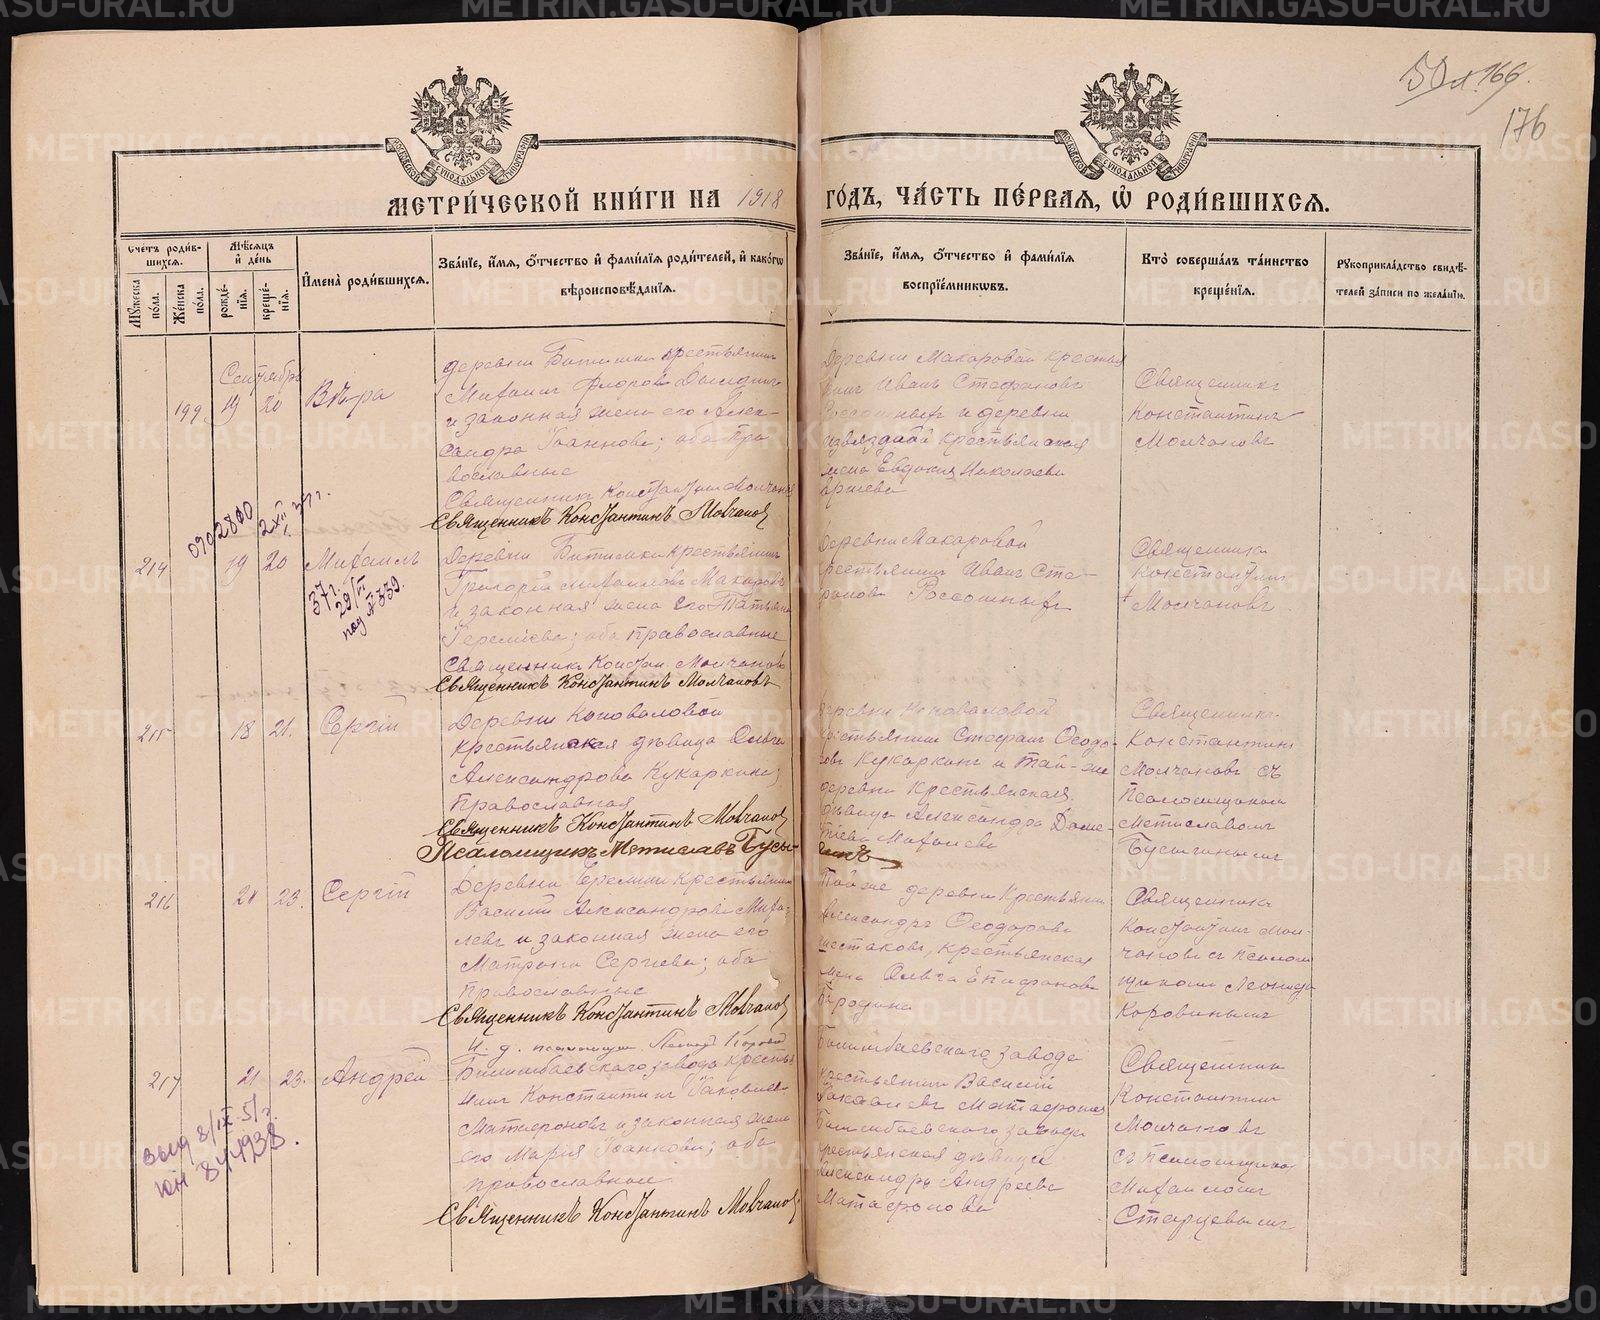 METRIKI.GASO-URAL.RU
50 л. 166.
176
МОСКОВСКОЙ СѴНОДАЛЬНОЙ ТИПОГРАФІИ
МОСКОВСКОЙ СѴНОДАЛЬНОЙ ТИПОГРАФІИ
МЕТРИ́ЧЕСКОЙ КНИ́ГИ НА 1918 ГО́ДЪ, ЧА́СТЬ ПЕ́РВАЯ, Ѡ РОДИ́ВШИХСЯ.
Сче́тъ роди́в-
шихся.
Му́жеска по́ла.
Же́нска по́ла.
Мѣ́сяцъ и де́нь
рожде́-
нія.
креще́-
нія.
Имена̀ роди́вшихся.
Зва́ніе, и́мя, о́тчество и фами́лія роди́телей, и како́гѡ
вѣроисповѣ́данія.
Зва́ніе, и́мя, о́тчество и фами́лія
воспріе́мникѡвъ.
Кто̀ соверша́лъ та́инство
креще́нія.
Рукоприкла́дство свидѣ́-
телей за́писи по жела́нію.
Сентябрь
199 19 20 Вѣра
деревни Битимки крестьянинъ
и законная жена его Алек-
сандра Іоаннова; оба пра
вославные
Священникъ Константинъ Молчановъ
Священникъ Константинъ Молчановъ
Деревни Макаровой крестья
нинъ Иванъ Стефановъ
и деревни
крестьянская
жена Евдокия Николаева
Священникъ
Константинъ
Молчановъ
2 XII 37 г.
214 19 20 Михаилъ
37 г.
29/VI
под № 359
Деревни Битимки крестьянинъ
Григорій Михаиловъ Макаровъ
и законная жена его Татьяна
оба православные
Священникъ Констан. Молчановъ
Священникъ Константинъ Молчановъ
Деревни Макаровой
крестьянинъ Иванъ Сте-
фановъ Россошныхъ
Священникъ
Константинъ
Молчановъ
215 18 21. Сергій
Деревни Коноваловой
крестьянская дѣвица Ольга
Александрова Кукаркина;
православная
Священникъ Константинъ Молчановъ
Псаломщикъ Мстиславъ Бусы-
гинъ
деревни Коноваловой
крестьянинъ Стефанъ Ѳеодо-
ровъ Кукаркинъ и той-же
деревни крестьянская
дѣвица Александра Доме-
тіева Михалева
Священникъ
Константинъ
Молчановъ съ
псаломщикомъ
Мстиславомъ
Бусыгинымъ
216 21 23. Сергій
Деревни Еремини крестьянинъ
Василій Александровъ Миха-
левъ и законная жена его
Матрона Сергіева; оба
православные
Священникъ Константинъ Молчановъ
И. д. псаломщика Леонидъ Коровинъ
Той же деревни крестьянинъ
Александръ Ѳеодоровъ
Шестаковъ, крестьянская
жена Ольга Епифанова
Бородина
Священникъ
Константинъ Мол-
чановъ съ псалом
щикомъ Леонидомъ
Коровинымъ
217 21 23. Андрей
выд 8/IX-51 г.
Билимбаевскаго завода крестья
нинъ Константинъ Іаковлевъ
Матафоновъ и законная жена
его Марія Іоаннова; оба
православные
Священникъ Константинъ Молчановъ
Билимбаевскаго завода
крестьянинъ Василій
Іаковлевъ Матафоновъ
Билимбаевскаго завода
крестьянская дѣвица
Александра Андреева
Матафонова
Священникъ
Константинъ
Молчановъ
съ псаломщикомъ
Михаиломъ
Старцевымъ